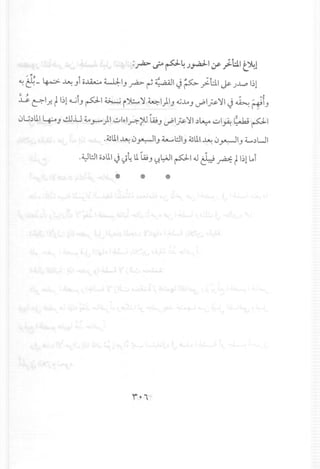 إبلاغ المتأخر عن الحضور بالحكم متى حضر:
إذا صدر على المتأخر حكم في القضية ثم حضر والجلسة منعقدة أو بعد ختمها ـ بُلِّغ به
وأُفهم بحقه في الاعتراض ومدته والمراجعة لاستلام نسخة الحكم وأنه إذا لم يراجع عُدَّ
الحكم قطعيًّا بفوات ميعاد الاعتراض وفقًا للإجراءات المرسومة لذلك ومنها المادتان
السادسة والسبعون بعد المائة والتاسعة والسبعون بعد المائة.
أما إذا لم يحضر فيبلغ له الحكم الغيابي وفقًا لما يأتي في المادة التالية.
* * *
٣٠٦